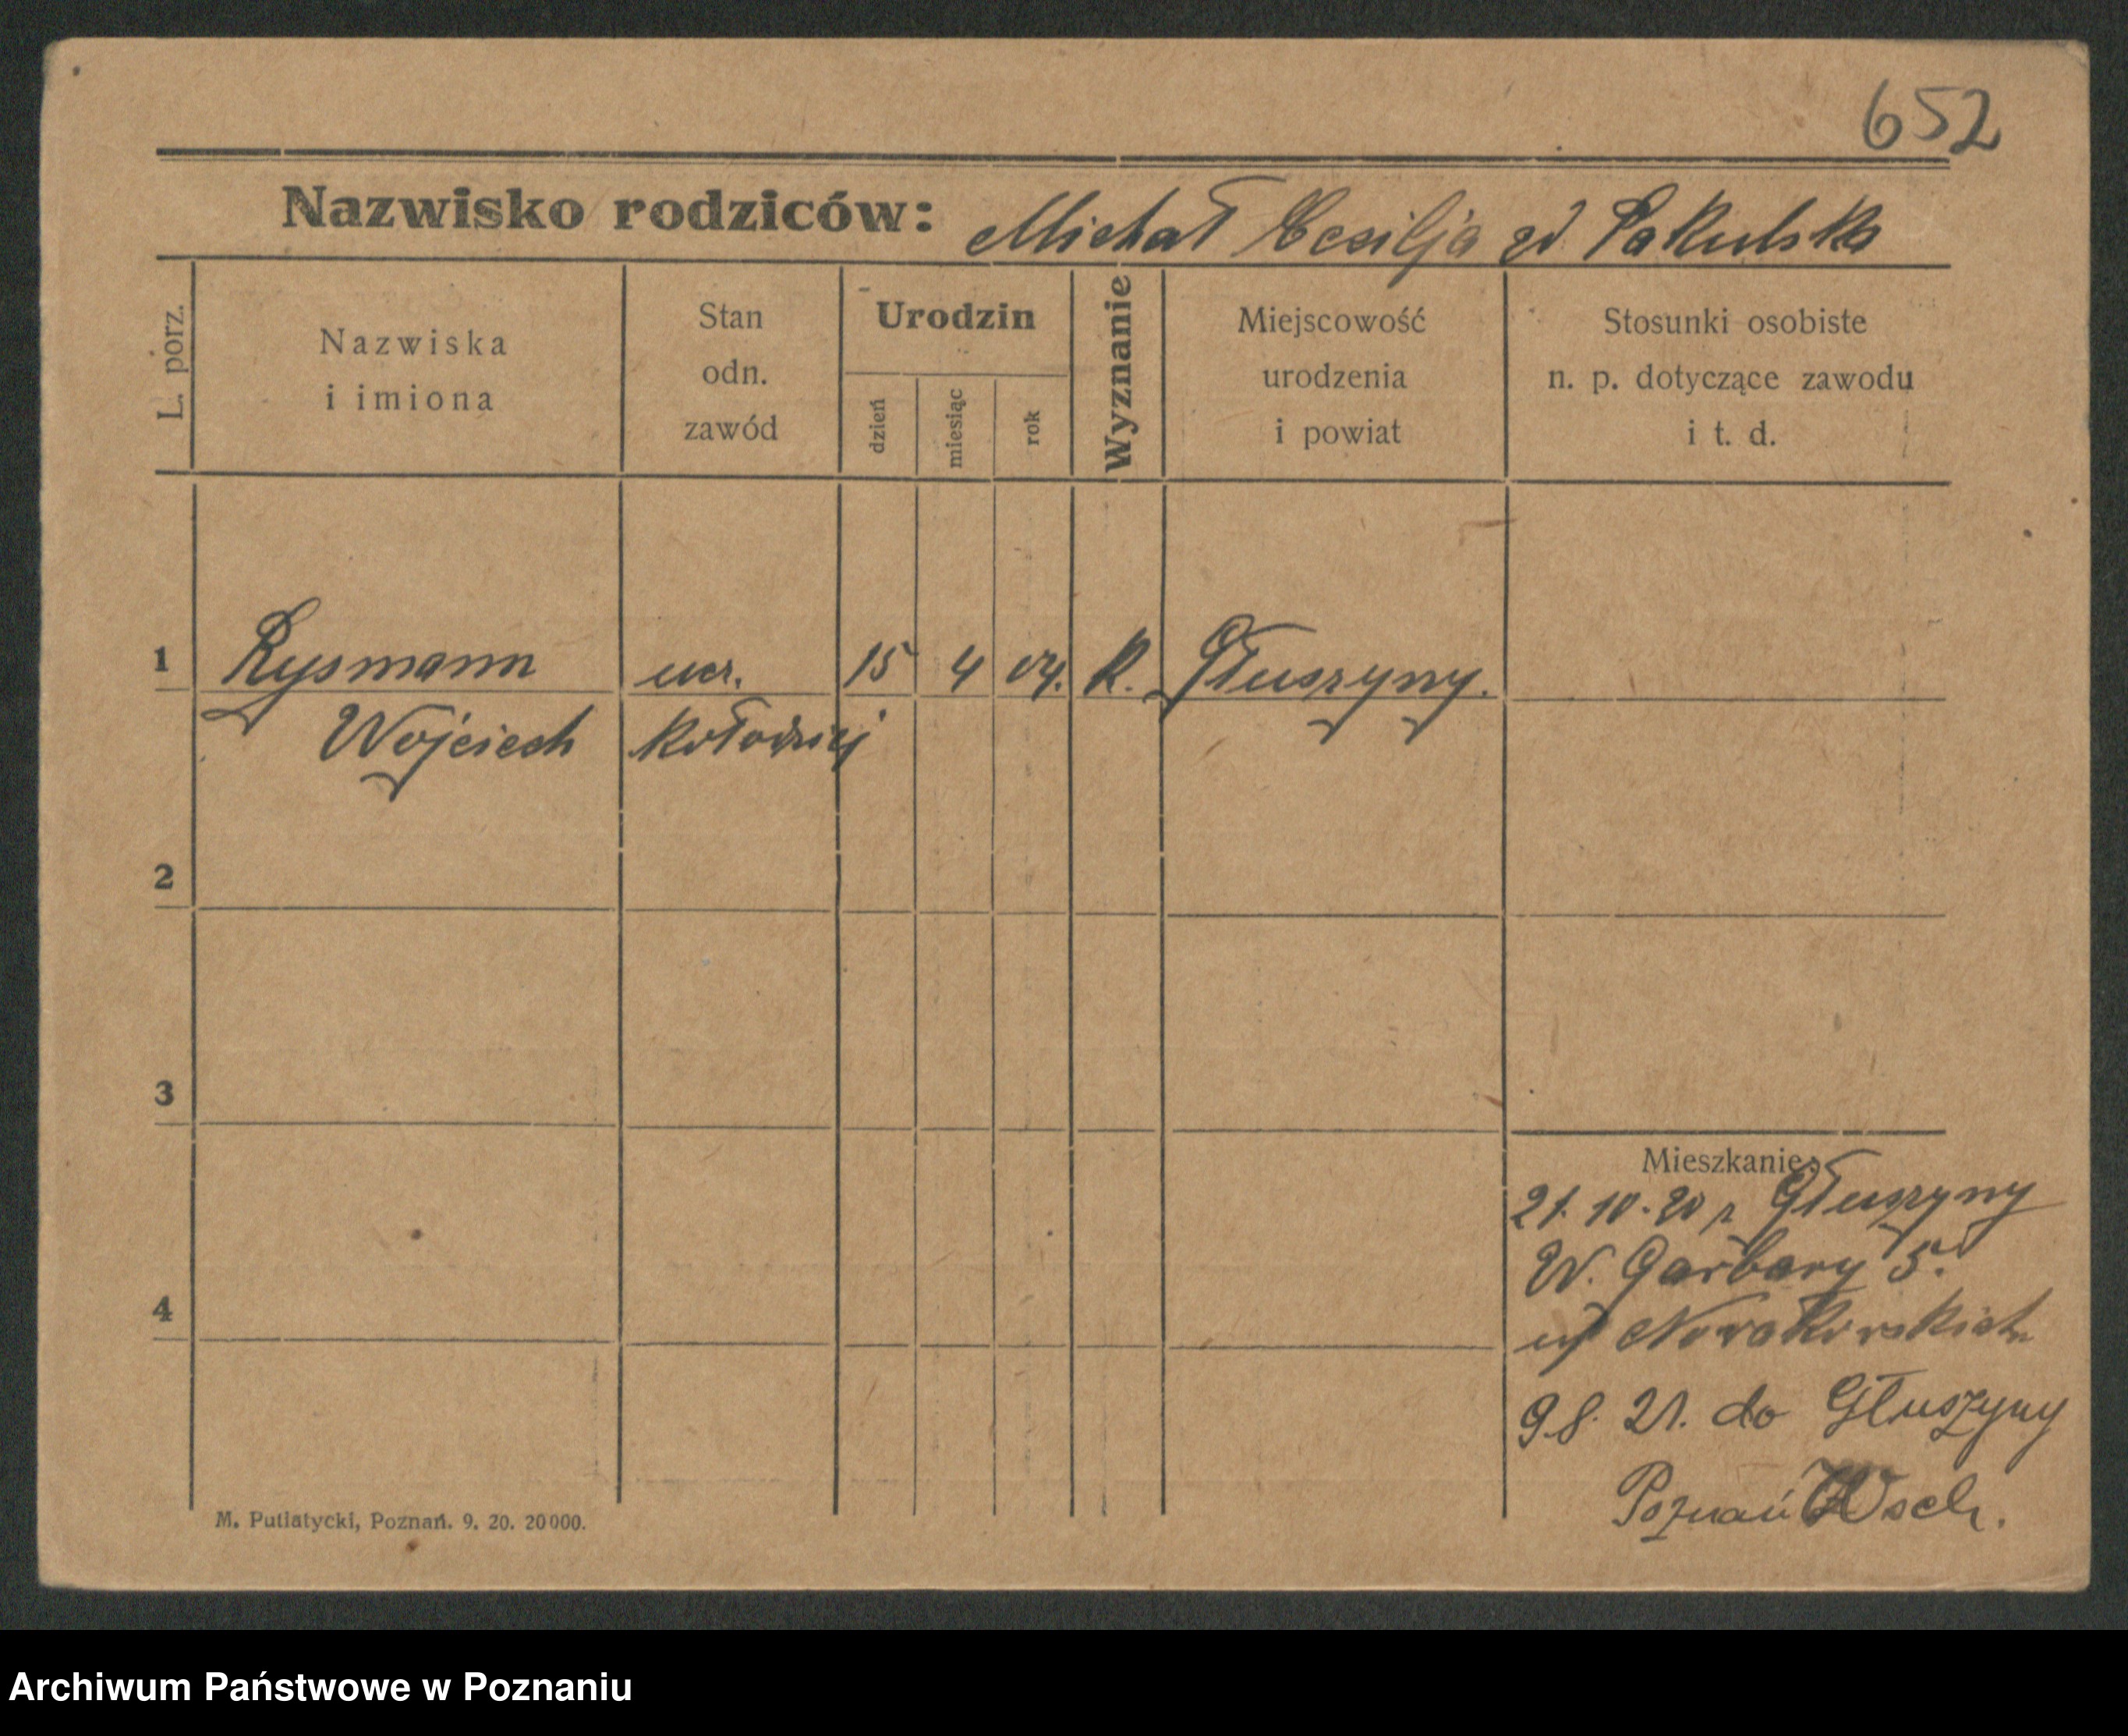 652
Nazwisko rodziców: Michał Cesilja zd Pakulska
L. porz.
Nazwiska i imiona
Stan odn. zawód
Urodzin
dzień
miesiąc
rok
Wyznanie
Miejscowość urodzenia i powiat
Stosunki osobiste n. p. dotyczące zawodu i t. d.
1 Rysmann ucz. 15 4 04. K. Głuszyny.
Wojciech kołodziej
2
3
4
Mieszkanie:
21. 10. 20 z Głuszyny
W. Garbary 5.
Nowakowskich
9.8. 21. do Głuszyny
Poznań Wsch.
M. Putiatycki, Poznań. 9. 20. 20000.
Archiwum Państwowe w Poznaniu